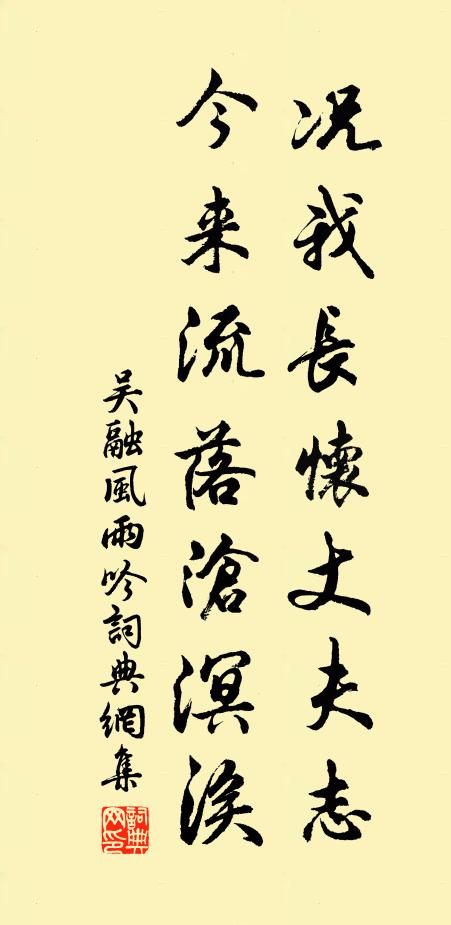 况我長懷丈夫志
今来流落滄溟涘
吴融風雨吟詞典網集
詞典網印